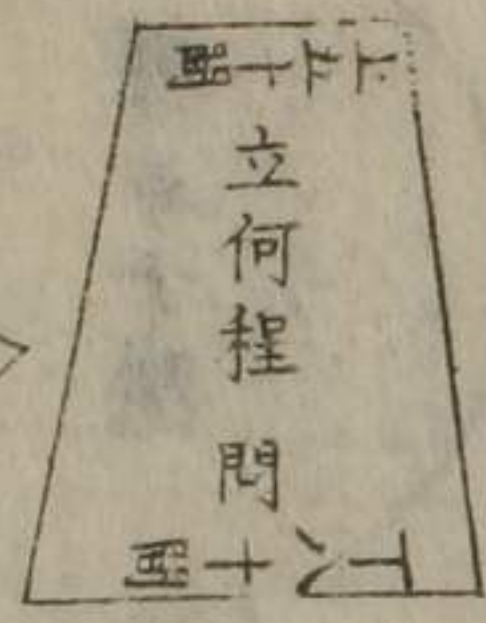 上五十間
立何程 問
下八十間